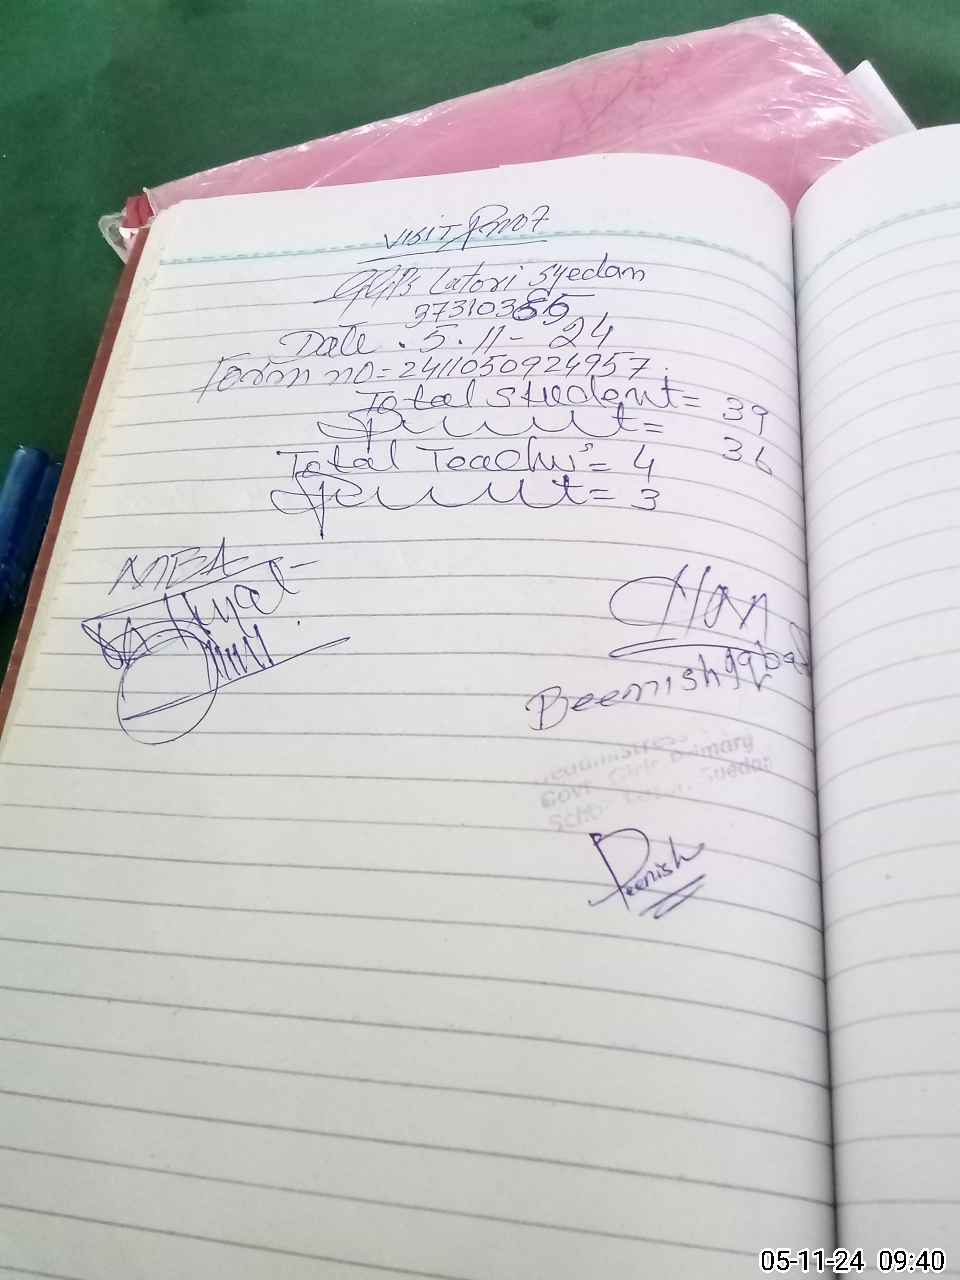 VISIT Proof
GGPS Latori Syedan
37310385
Date . 5 . 11 - 24
Form no = 2411050924957.
Total student = 39
Present = 36
Total Teacher's = 4
Present = 3
MEA
Beenish Iqbal
Headmistress
Govt. Girls Primary
School Syedan
Beenish
05-11-24 09:40